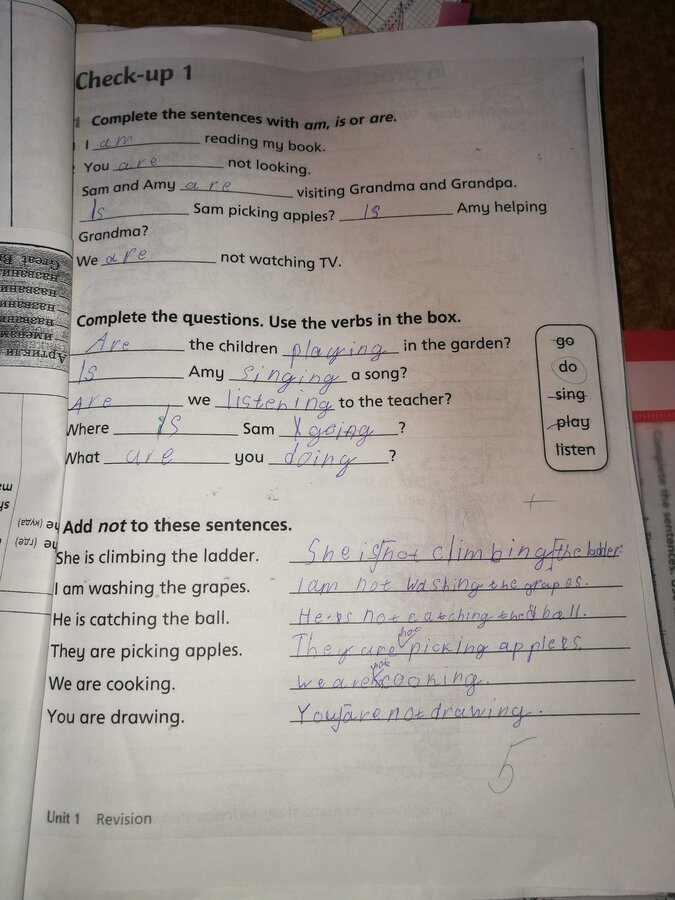 Check-up 1
Complete the sentences with am, is or are.
I am reading my book.
You are not looking.
Sam and Amy are visiting Grandma and Grandpa.
Is Sam picking apples? Is Amy helping
Grandma?
We are not watching TV.
Complete the questions. Use the verbs in the box.
Are the children playing in the garden?
Is Amy singing a song?
Are we listening to the teacher?
Where is Sam going ?
What are you doing ?
go
do
sing
play
listen
Add not to these sentences.
She is climbing the ladder. She is not climbing the ladder.
I am washing the grapes. I am not washing the grapes.
He is catching the ball. He is not catching the ball.
They are picking apples. They are not picking applers.
We are cooking. we are not cooking.
You are drawing. You are not drawing.
5
Unit 1 Revision
Артикли
именам
названи
названи
названи
названи
Great Br
не (куда)
не (где)
Complete the sentences.